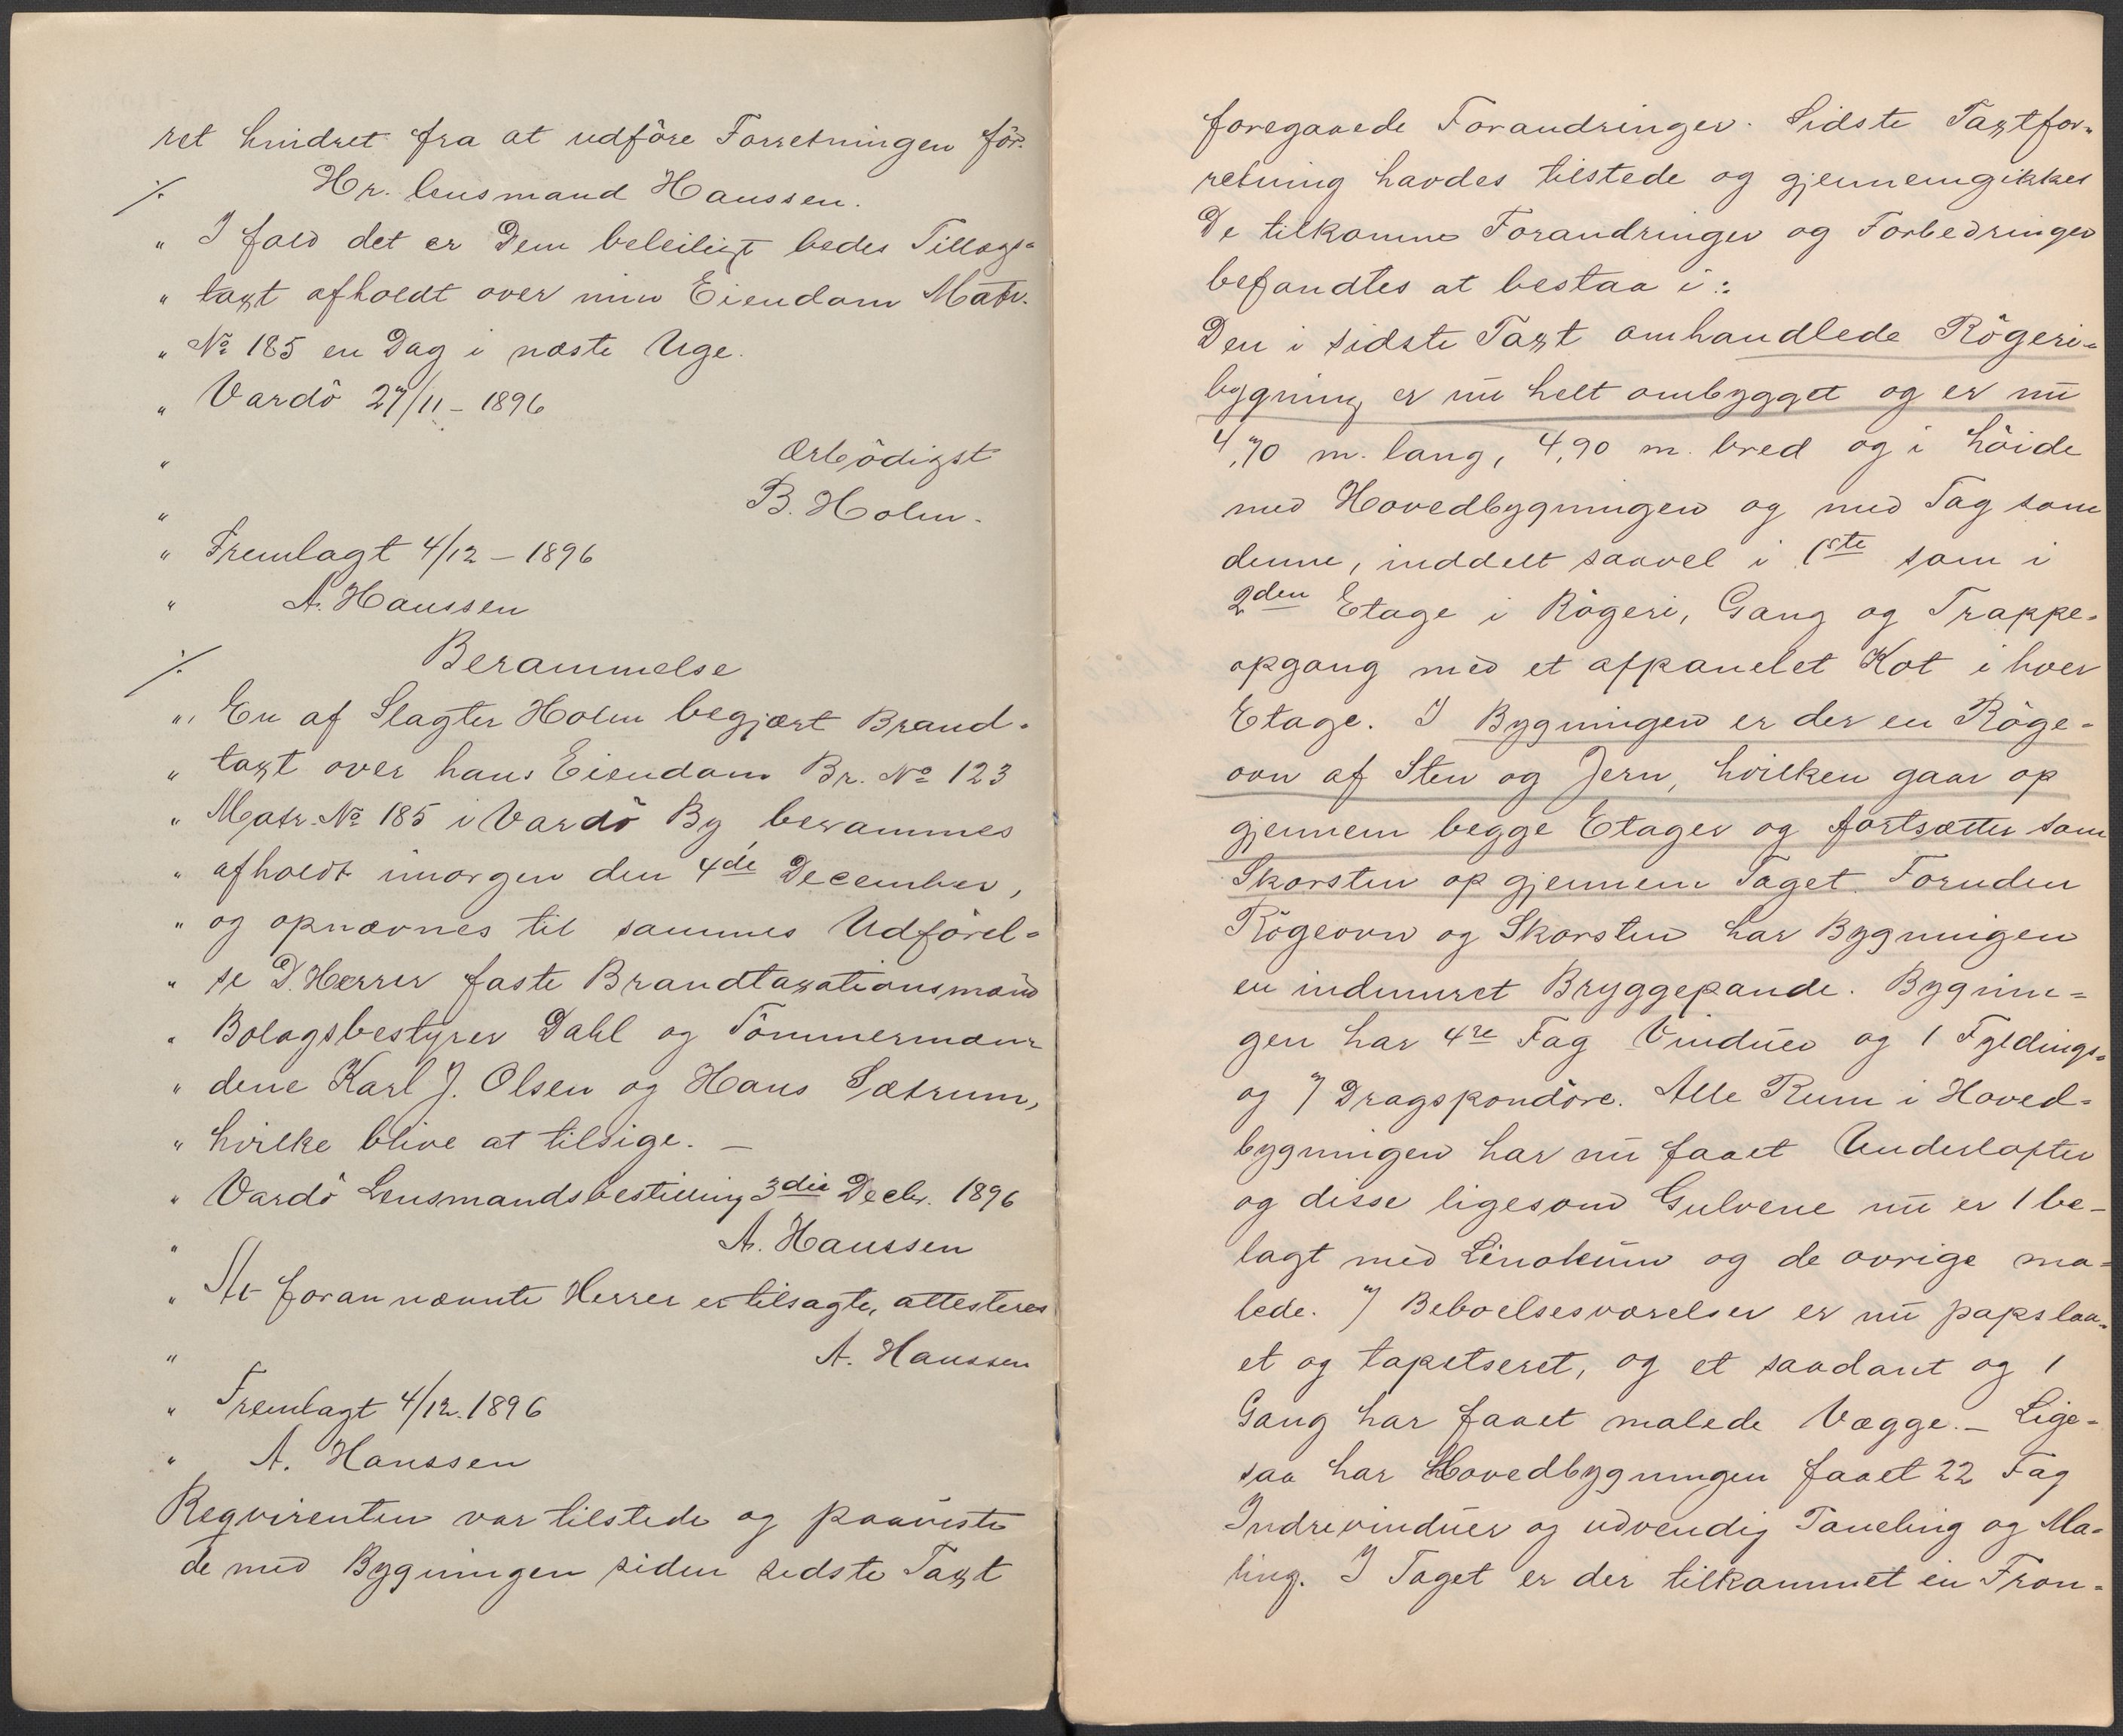 ret hindret fra at udföre Forretningen för.
⁒ Hr. Lensmand Hanssen.
" I fald det er Dem beleiligt bedes Tillægs=
" taxt afholdt over min Eiendom Matr.
" No 185 en Dag i næste Uge.
" Vardö 27/11 - 1896
" Ærbödigst
" B. Holm.
" Fremlagt 4/12 - 1896
" A. Hanssen
⁒ Berammelse
" En af Slagter Holm begjært Brand=
" taxt over hans Eiendom Br. No 123
" Matr. No 185 i Vardö By, berammes
" afholdt imorgen den 4de December,
" og opnævnes til sammes Udförel=
" se D. Herrer faste Brandtaxationsmænd
" Bolagsbestyrer Dahl og Tömmermæn=
" dene Karl J. Olsen og Hans Sætrum,
" hvilke blive at tilsige. —
" Vardö Lensmandsbestilling 3die Decbr. 1896
" A. Hanssen
" At forannævnte Herrer er tilsagte, attesteres
" A. Hanssen
" Fremlagt 4/12. 1896
" A. Hanssen
Reqvirenten var tilstede og paaviste
de med Bygningen siden sidste Taxt
foregaaede Forandringer. Sidste Taxtfor=
retning havdes tilstede og gjennemgikkes
De tilkomne Forandringer og Forbedringer
befandtes at bestaa i:
Den i sidste Taxt omhandlede Rögeri=
bygning er nu helt ombygget og er nu
4,70 m. lang, 4,90 m. bred og i höide
med Hovedbygningen og med Tag som
denne, inddelt saavel i 1ste som i
2den Etage i Rögeri, Gang og Trappe=
opgang med et afpanelet Kot i hver
Etage. I Bygningen er der en Röge=
ovn af Sten og Jern, hvilken gaar op
gjennem begge Etager og fortsætter som
Skorsten op gjennem Taget. Foruden
Rögeovn og Skorsten har Bygningen
en indmuret Bryggepande. Bygnin=
gen har 4re Fag Vinduer og 1 Fyldings=
og 7 Dragspondöre. Alle Rum i Hoved=
bygningen har nu faaet Underlofter
og disse ligesom Gulvene nu er 1 be=
lagt med Linoleum og de øvrige ma=
lede. 7 Beboelsesværelser er nu papslaa=
et og tapetseret, og et saadant og 1
Gang har faaet malede Vægge. — Lige=
saa har Hovedbygningen faaet 22 Fag
Indrevinduer og udvendig Paneling og Ma=
ling. I Taget er der tilkommet en Fron=